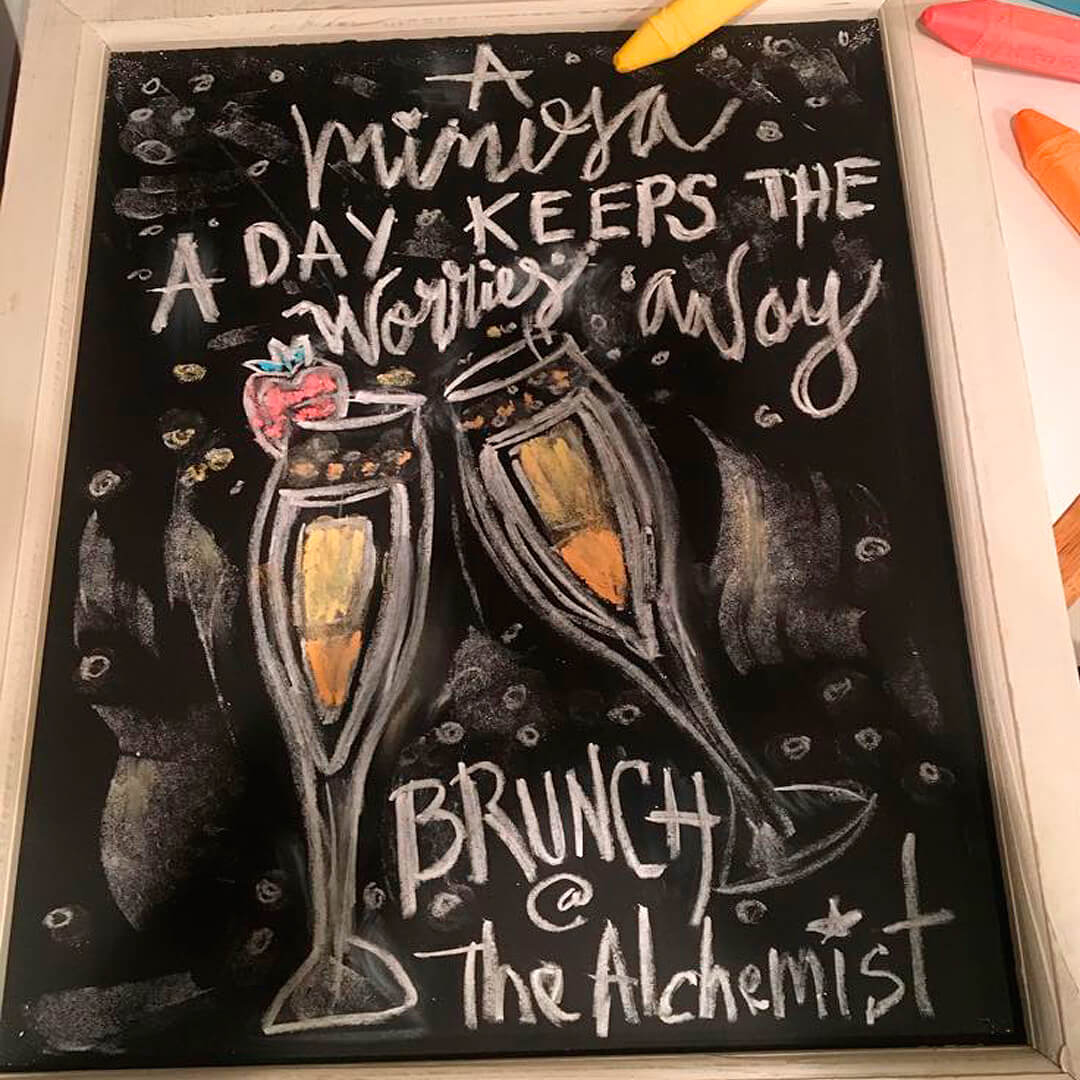 A
mimosa
A DAY KEEPS THE
Worries away
BRUNCH
@
The Alchemist